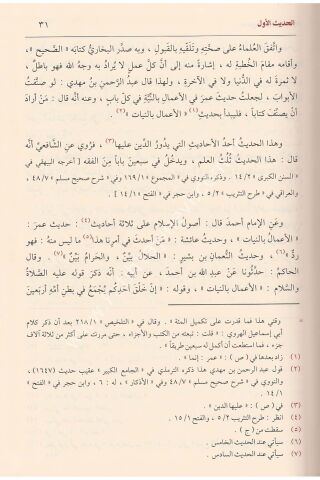 الحديث الأول
٣١
واتَّفقَ العلماءُ على صحَّتِهِ وتلقِّيهِ بالقَبولِ ، وبه صدَّر البخاريُّ كتابَه « الصَّحيح » ،
وأقامه مقامَ الخُطبةِ له ، إشارةً منه إلى أنَّ كلَّ عملٍ لا يُرادُ به وجهُ الله فهو باطلٌ ،
لا ثمرةَ له في الدُّنيا ولا في الآخرةِ ، ولهذا قال عبدُ الرَّحمنِ بنُ مهدي : لو صنَّفتُ
الأبوابَ ، لجعلتُ حديثَ عمرَ في الأعمالِ بالنِّيَّةِ في كلِّ بابٍ ، وعنه أنَّه قال : مَنْ أرادَ
أنْ يصنِّفَ كتاباً ، فليبدأ بحديثِ (١) « الأعمال بالنيات » (٢) .
وهذا الحديثُ أحدُ الأحاديثِ التي يدُورُ الدِّين عليها (٣) ، فرُوي عنِ الشَّافعيِّ أنَّه
قال : هذا الحديثُ ثُلُثُ العلمِ ، ويدخُلُ في سبعينَ باباً مِنَ الفقه [ أخرجه البيهقي في
« السنن الكبرى » ١٤/٢ ، وذكره النووي في « المجموع » ١٦٩/١ وفي « شرح صحيح مسلم » ٤٨/٧ ،
والعراقي في « طرح التثريب » ٥/٢ ، وابن حجر في « الفتح » ١٤/١ ] .
وعَنِ الإمام أحمدَ قال : أصولُ الإسلام على ثلاثةِ أحاديث (٤) : حديث عمرَ :
« الأعمالُ بالنيات » ، وحديثُ عائشة : « مَنْ أحدثَ في أمرِنا هذا (٥) ما ليس منهُ ؛ فهو
ردٌّ » (٦) ، وحديثُ النُّعمانِ بنِ بشيرٍ : « الحلالُ بيِّنٌ ، والحَرامُ بَيِّنٌ » (٧) . وقال
الحاكمُ : حدَّثُونا عَنْ عبدِ الله بنِ أحمدَ ، عن أبيه : أنَّه ذكرَ قوله عليه الصَّلاةُ
والسَّلام : « الأعمال بالنيات » ، وقوله : « إنَّ خَلْقَ أحدِكُم يُجْمَعُ في بطنِ أمِّهِ أربَعينَ
= وقتي هذا فما قدرت على تكميل المئة » . وقال في « التلخيص » ٢١٨/١ بعد أن ذكر كلام
أبي إسماعيل الهروي : « قلت : تبعته من الكتب والأجزاء ، حتى مررت على أكثر من ثلاثة آلاف
جزء ، فما استطعت أن أكمل له سبعين طريقاً » .
(١) زاد بعدها في ( ص ) : « عمر : إنما » .
(٢) قول عبد الرحمن بن مهدي هذا ذكره الترمذي في « الجامع الكبير » عقيب حديث (١٦٤٧) ،
والنووي في « شرح صحيح مسلم » ٤٨/٧ وفي « الأذكار » ، له : ٦ ، وابن حجر في « الفتح »
١٤/١ .
(٣) في ( ص ) : « عليها الدين » .
(٤) انظر : طرح التثريب ٥/٢ ، والفتح ١٥/١ .
(٥) سقطت من ( ج ) .
(٦) سيأتي عند الحديث الخامس .
(٧) سيأتي عند الحديث السادس .